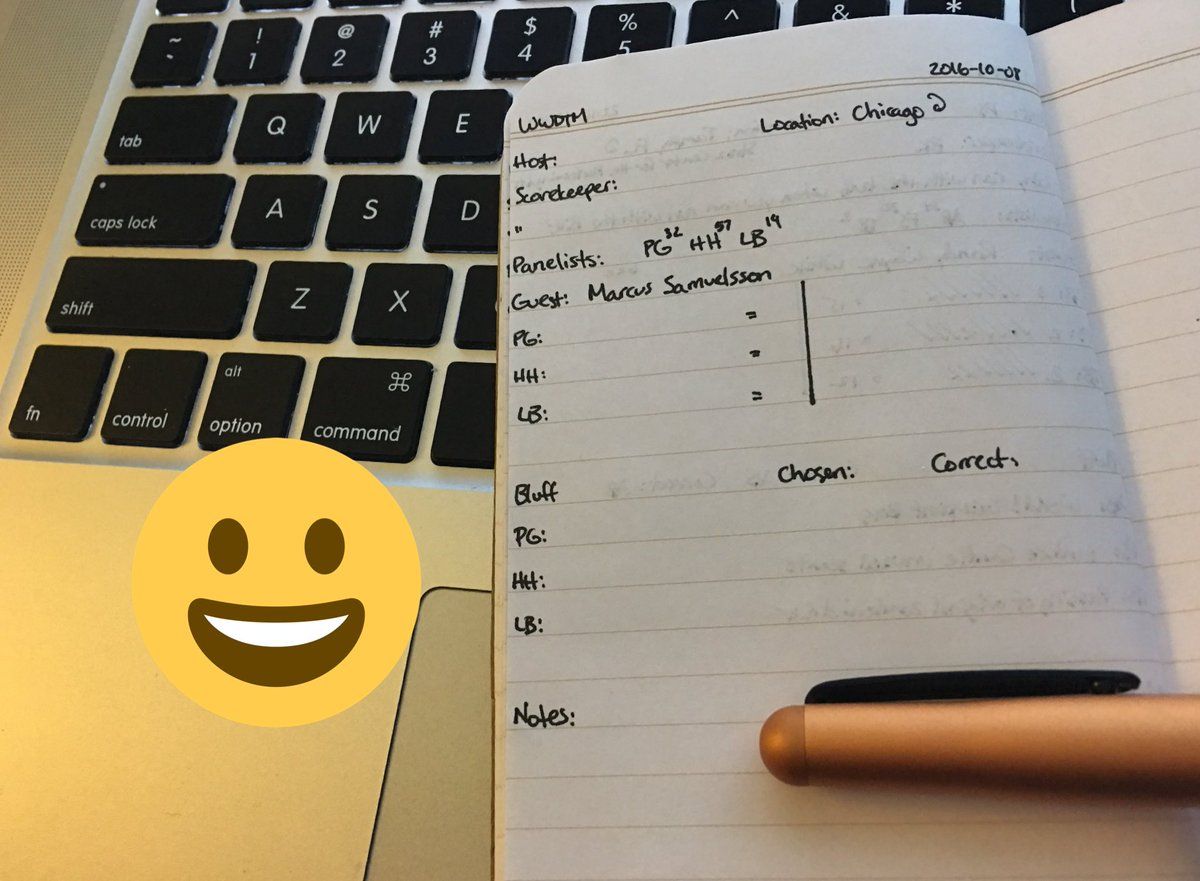 ~ ! @ # $ % ^ & *
` 1 2 3 4 5
tab Q W E
caps lock A S D
shift Z X
fn control alt option command ⌘
2016-10-08
WWDTM Location: Chicago
Host:
Scorekeeper:
"
Panelists: PG³² HH⁵⁷ LB¹⁹
Guest: Marcus Samuelsson
PG: =
HH: =
LB: =
Bluff Chosen: Correct:
PG:
HH:
LB:
Notes: